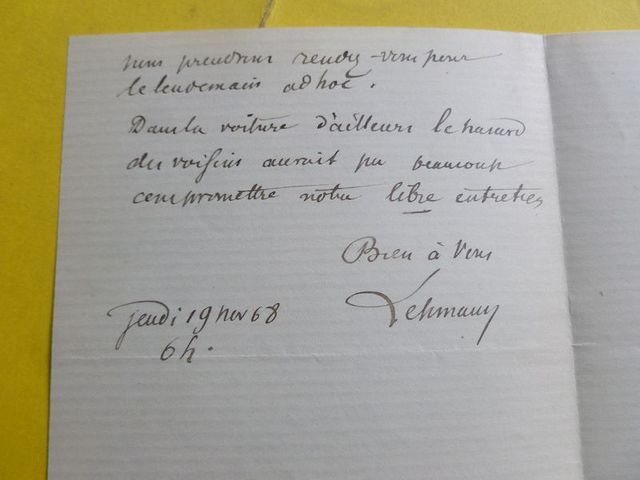 nous prendrons rendez-vous pour
le lendemain ad hoc.
Dans la voiture d'ailleurs le hasard
des voisins aurait pu beaucoup
compromettre notre libre entretien
Bien à Vous
Lehmann
jeudi 19 nov 68
6h.